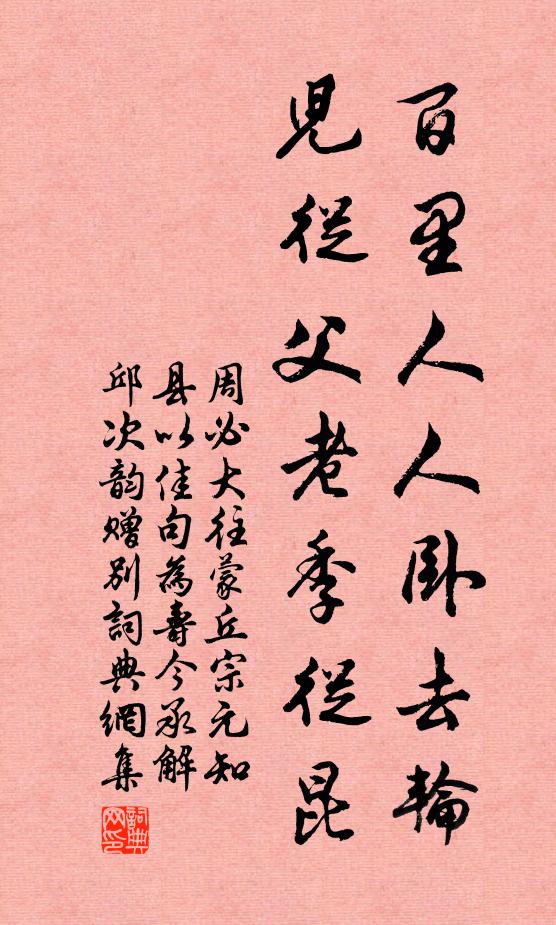 百里人人卧去輪
児從父老季從昆
周必大往蒙丘宗元知
县以佳句為壽今承解
邱次韵赠别詞典網集
詞典
网印